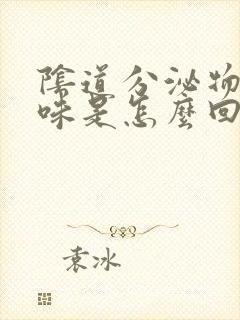 陰道分泌物
味是怎麼回
袁冰